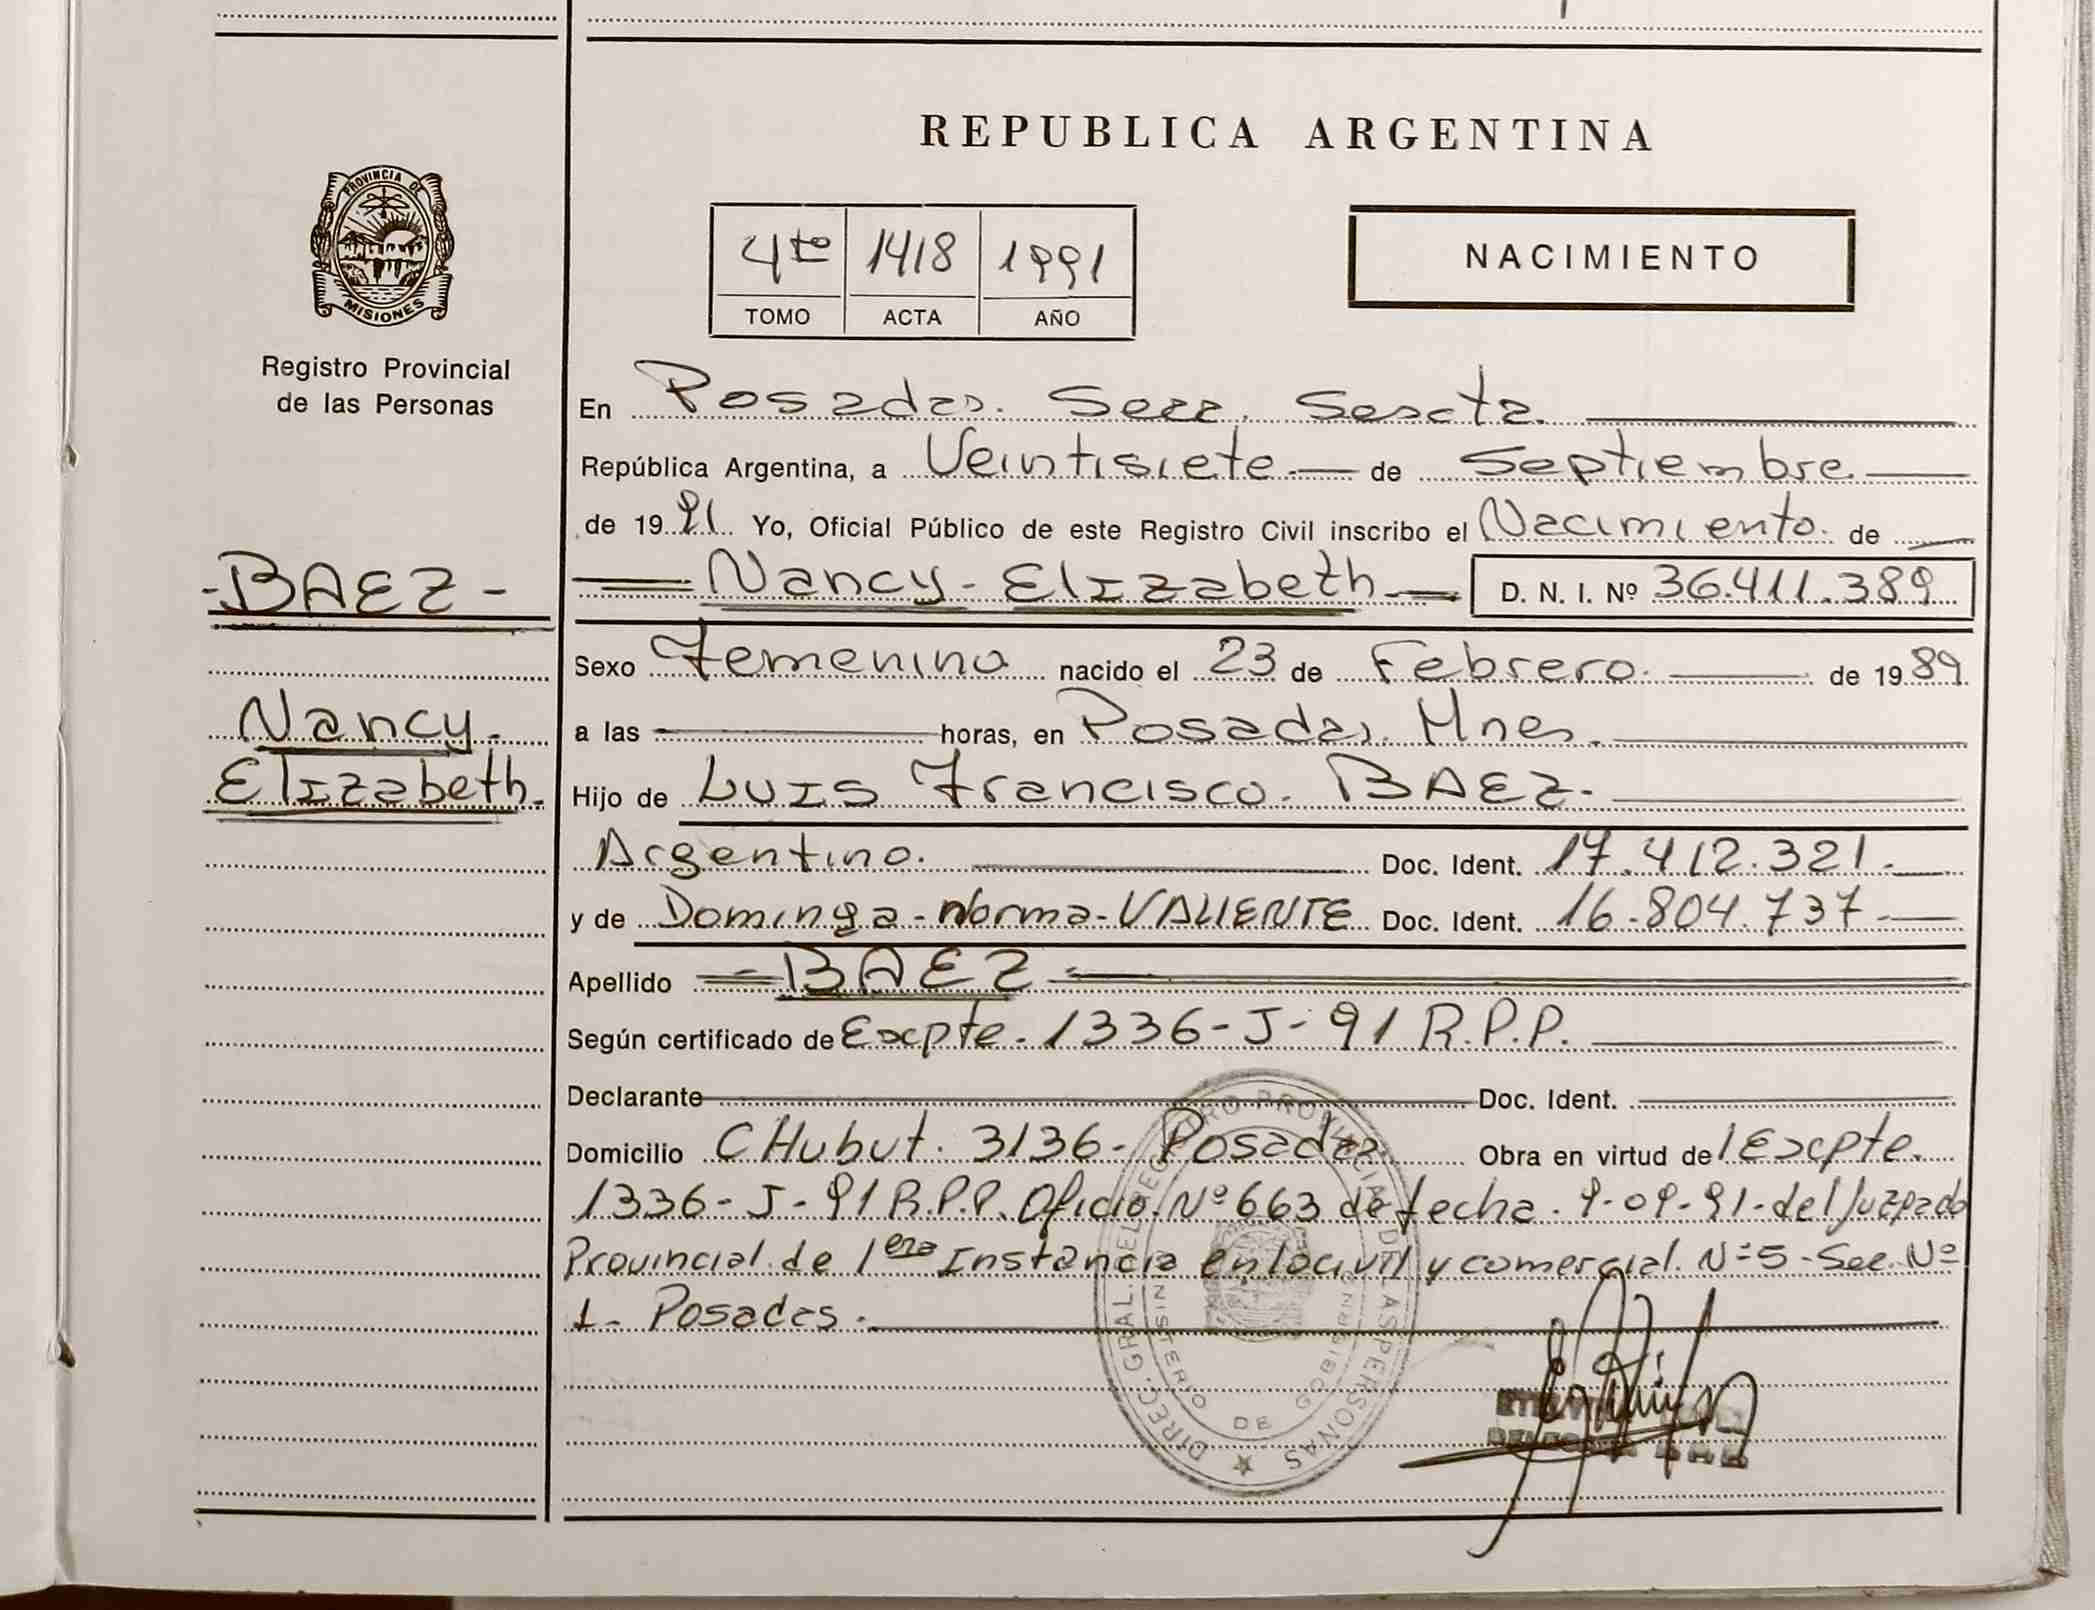 REPUBLICA ARGENTINA
PROVINCIA DE
MISIONES
4to 1418 1991
TOMO ACTA AÑO
NACIMIENTO
Registro Provincial
de las Personas
En Posadas. Secc. Sescta.
República Argentina, a Veintisiete. de Septiembre.
de 1991. Yo, Oficial Público de este Registro Civil inscribo el Nacimiento. de
-BAEZ-
Nancy-Elizabeth D. N. I. Nº 36.411.389
Sexo Femenino nacido el 23 de Febrero. de 1989.
Nancy.
a las horas, en Posadas. Mnes.
Elizabeth.
Hijo de Luis Francisco. BAEZ.
Argentino. Doc. Ident. 17.412.321.
y de Dominga-Norma-VALIENTE Doc. Ident. 16-804.737-
Apellido BAEZ
Según certificado de Excpte. 1336-J-91 R.P.P.
Declarante Doc. Ident.
Domicilio CHubut. 3136- Posadas. Obra en virtud de l Excpte.
1336-J-91 R.P.P. Oficio Nº 663 de fecha. 9-09-91-del Juzgado
Provincial de 1era Instancia en lo civil y comercial. Nº5-Sec. Nº
1- Posadas.
DIREC. GRAL. DEL REGISTRO PROVINCIAL DE LAS PERSONAS
MINISTERIO DE GOBIERNO